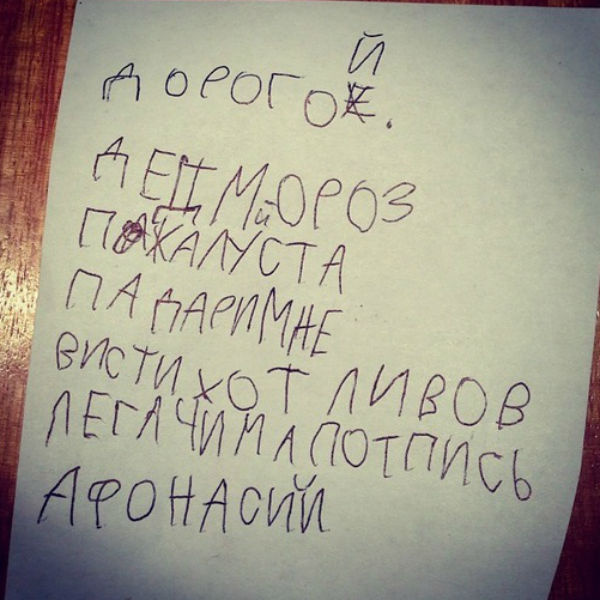 ДОРОГОЙ.
ДЕД МйОРОЗ
ПАЖАЛУСТА
ПАДАРИМНЕ
ВИСТИХОТ ЛИВОВ
ЛЕГАЧИМА ПОТПИСЬ
АФОНАСИЙ